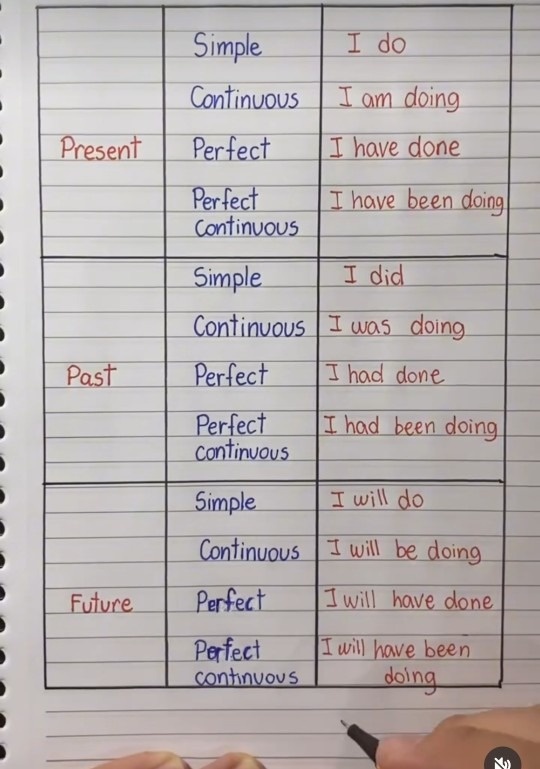 Simple I do
Continuous I am doing
Present Perfect I have done
Perfect I have been doing
continuous
Simple I did
Continuous I was doing
Past Perfect I had done
Perfect I had been doing
continuous
Simple I will do
Continuous I will be doing
Future Perfect I will have done
Perfect I will have been
continuous doing